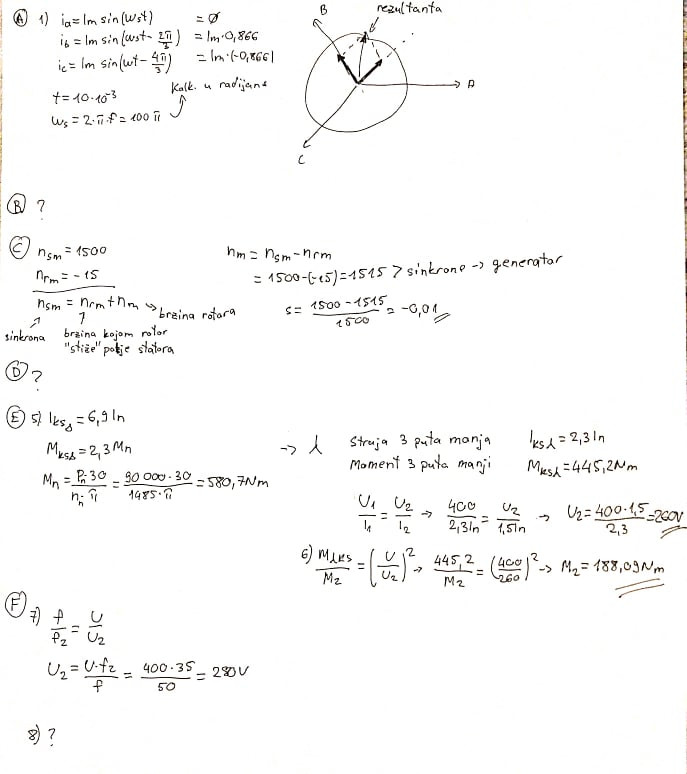 Ⓐ 1) ia = Im sin(ωst) = 0
ib = Im sin(ωst - 2π/3) = Im·0,866
ic = Im sin(ωt - 4π/3) = Im·(-0,866)
t = 10·10⁻³
Kalk. u radijane
ωs = 2·π·f = 100π
rezultanta
B
A
C
Ⓑ ?
Ⓒ nsm = 1500
nrm = -15
nsm = nrm + nm → brzina rotora
sinkrona
brzina kojom rotor
"stiže" polje statora
nm = nsm - nrm
= 1500-(-15) = 1515 > sinkrone → generator
s = (1500 - 1515)/1500 = -0,01
Ⓓ ?
Ⓔ 5) Iks△ = 6,9 In
Mks△ = 2,3 Mn
Mn = Pn·30/nn·π = 90 000·30/1485·π = 580,7 Nm
→ ⅄ Struja 3 puta manja Iks⅄ = 2,3 In
Moment 3 puta manji Mks⅄ = 445,2 Nm
U1/I1 = U2/I2 → 400/2,3In = U2/1,5In → U2 = 400·1,5/2,3 = 260V
6) M⅄ks/M2 = (U/U2)² → 445,2/M2 = (400/260)² → M2 = 188,09 Nm
Ⓕ 7) f/f2 = U/U2
U2 = U·f2/f = 400·35/50 = 280V
8) ?